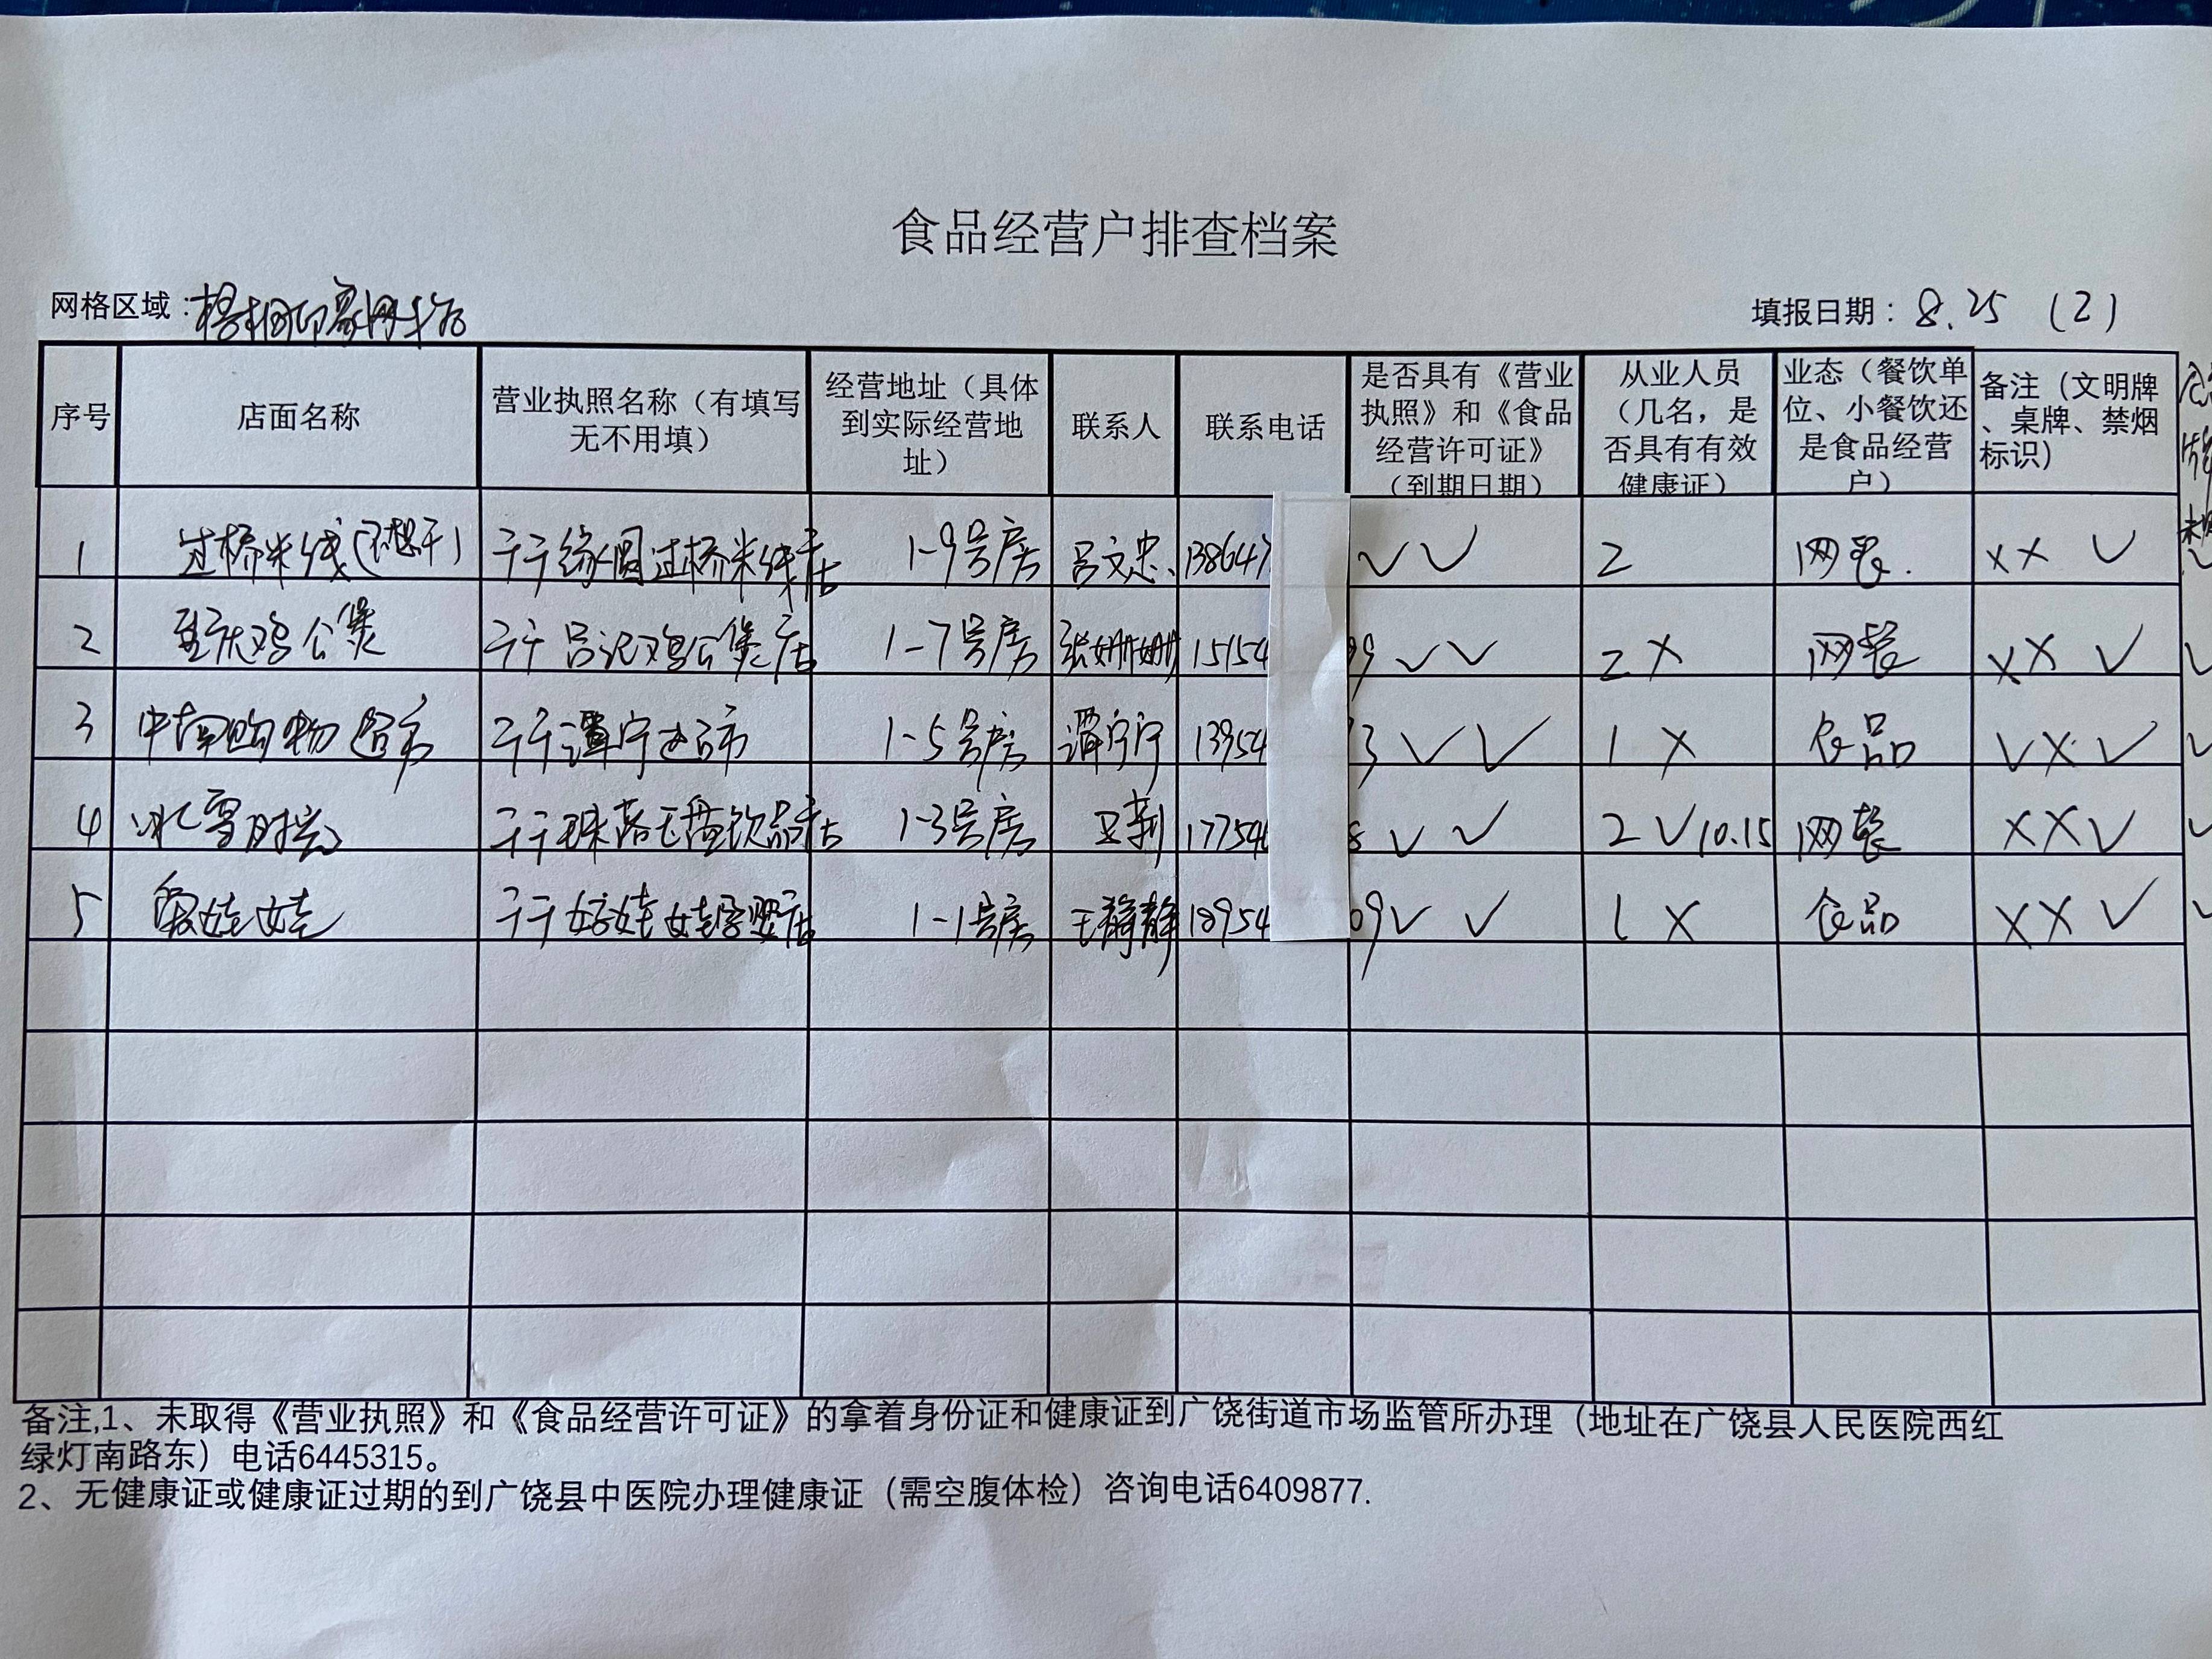 食品经营户排查档案
网格区域：
填报日期：8.25 (2)
序号 店面名称 营业执照名称（有填写无不用填） 经营地址（具体到实际经营地址） 联系人 联系电话 是否具有《营业执照》和《食品经营许可证》（到期日期） 从业人员（几名，是否具有有效健康证） 业态（餐饮单位、小餐饮还是食品经营户） 备注（文明牌、桌牌、禁烟标识）
1 过桥米线(不想干) 缘圆过桥米线店 1-9号房 吕文忠 138647 ✓✓ 2 网餐. ×× ✓
2 重庆鸡公煲 吕记鸡公煲店 1-7号房 张姗姗 15154 99 ✓✓ 2 × 网餐 ×× ✓
3 中南购物超市 谭宁超市 1-5号房 谭宁宁 13954 3 ✓✓ 1 × 食品 ✓×✓
4 冰雪时光 珠落玉盘饮品店 1-3号房 17754 8 ✓ ✓ 2 ✓ 10.15 网餐 ××✓
5 娃娃 娃娃孕婴店 1-1号房 王静静 18954 09 ✓ ✓ 1 × 食品 ××✓
备注,1、未取得《营业执照》和《食品经营许可证》的拿着身份证和健康证到广饶街道市场监管所办理（地址在广饶县人民医院西红
绿灯南路东）电话6445315。
2、无健康证或健康证过期的到广饶县中医院办理健康证（需空腹体检）咨询电话6409877.